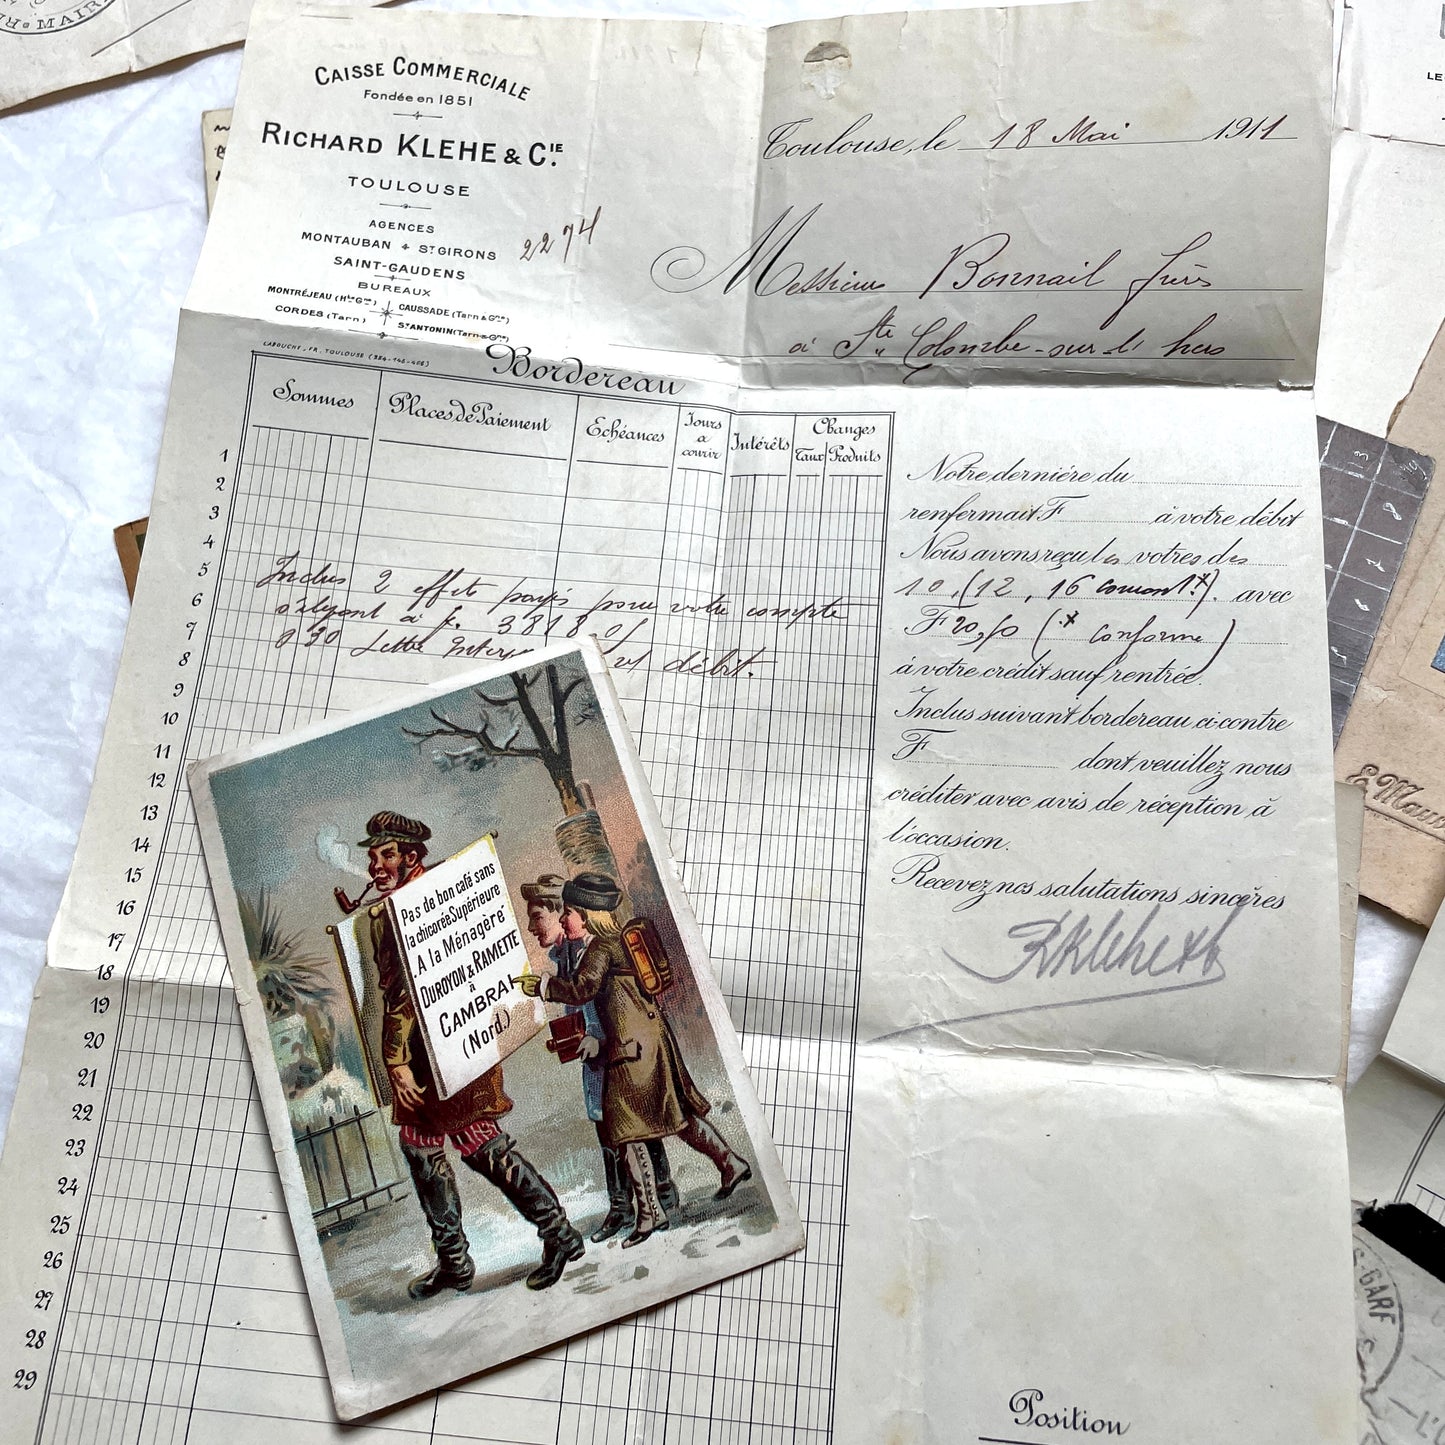 MAIRI
CAISSE COMMERCIALE
Fondée en 1851
RICHARD KLEHE & CIE
TOULOUSE
AGENCES
MONTAUBAN & ST GIRONS
SAINT-GAUDENS
BUREAUX
MONTRÉJEAU (Hte Gne) CAUSSADE (Tarn & Gne)
CORDES (Tarn) ST ANTONIN (Tarn & Gne)
2274
Toulouse, le 18 Mai 1911
Messieurs Bonnail frères
à Ste Colombe-sur-l'hers
LABOUCHE FR. TOULOUSE
Bordereau
Sommes Places de Paiement Echéances Jours à courir Intérêts Changes
Taux Produits
1
2
3
4
5
6
7
8
9
10
11
12
13
14
15
16
17
18
19
20
21
22
23
24
25
26
27
28
29
Inclus 2 effets payés pour votre compte
à f. 3818
030 Lettre débit.
Notre dernière du
renfermait F à votre débit
Nous avons reçu les vôtres des
10, (12, 16 avec
F 20,50 (* conforme)
à votre crédit sauf rentrée.
Inclus suivant bordereau ci-contre
F dont veuillez nous
créditer avec avis de réception à
l'occasion.
Recevez nos salutations sincères
Position
Pas de bon café sans
la chicorée Supérieure
A la Ménagère
DUROYON & RAMETTE
à
CAMBRAI
(Nord.)
LE
E. Maus
S-GARF